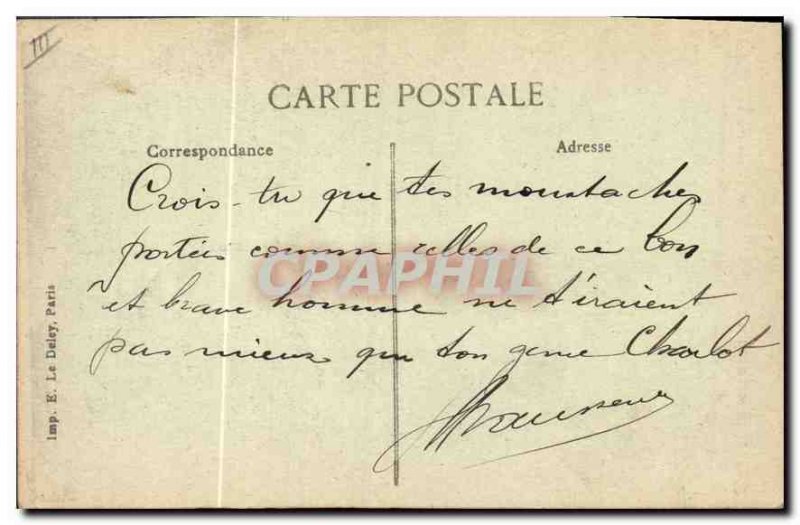 III
CARTE POSTALE
Correspondance
Adresse
Crois-tu que tes moustaches
portées comme celles de ce bon
et brave homme ne t'iraient
pas mieux que ton genre Charlot
CPAPHIL
Imp. E. Le Deley, Paris